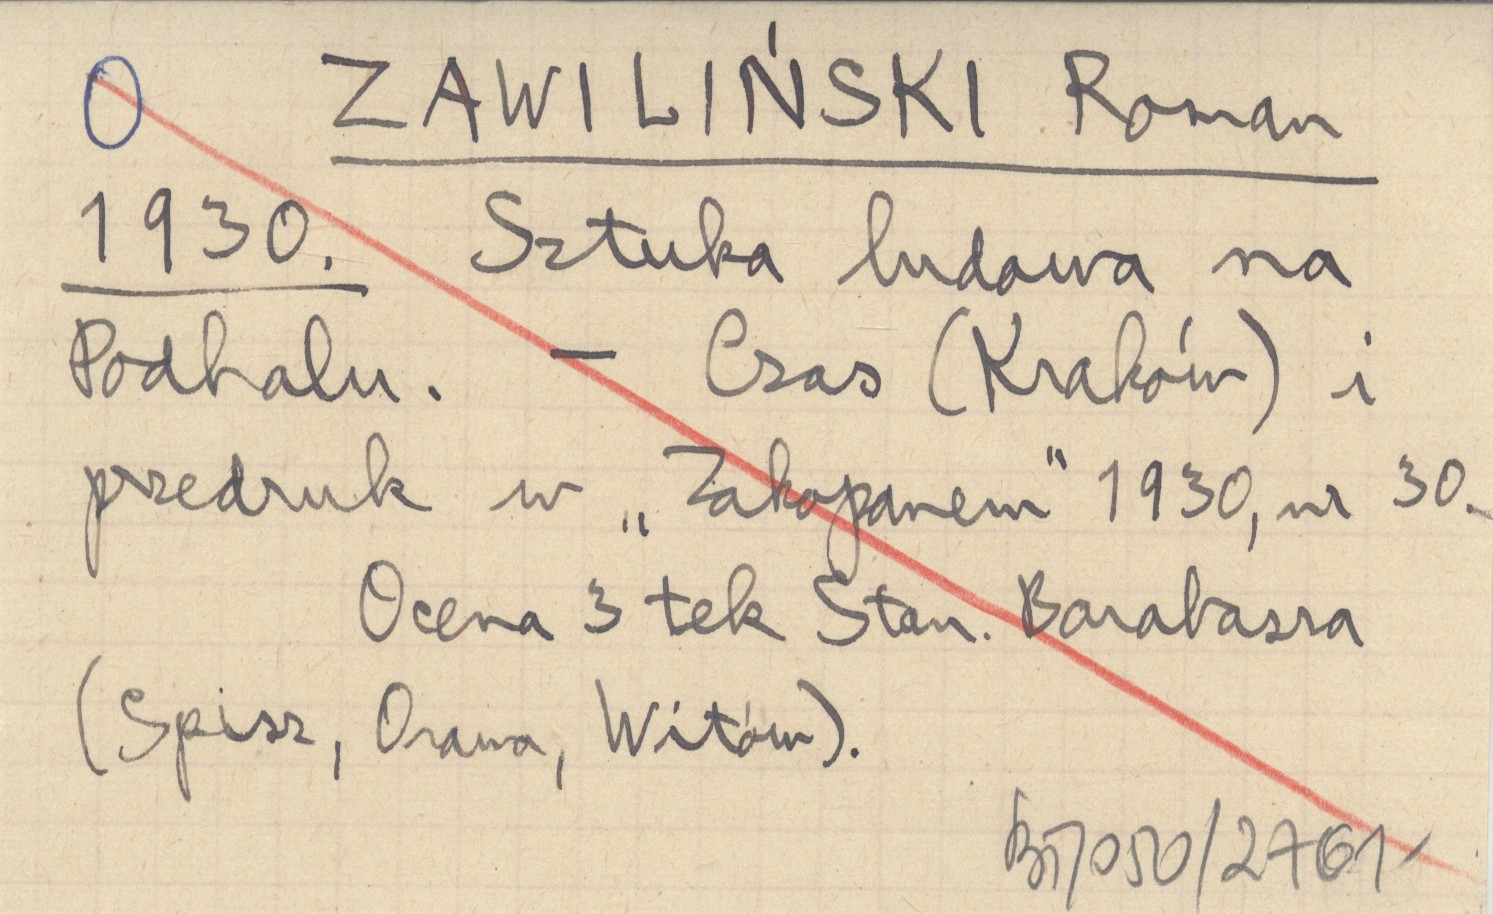 O ZAWILIŃSKI Roman
1930. Sztuka ludowa na
Podhalu. – Czas (Kraków) i
przedruk w „Zakopanem" 1930, nr 30.
Ocena 3 tek Stan. Barabasza
(Spisz, Orawa, Witów).
/050/2761